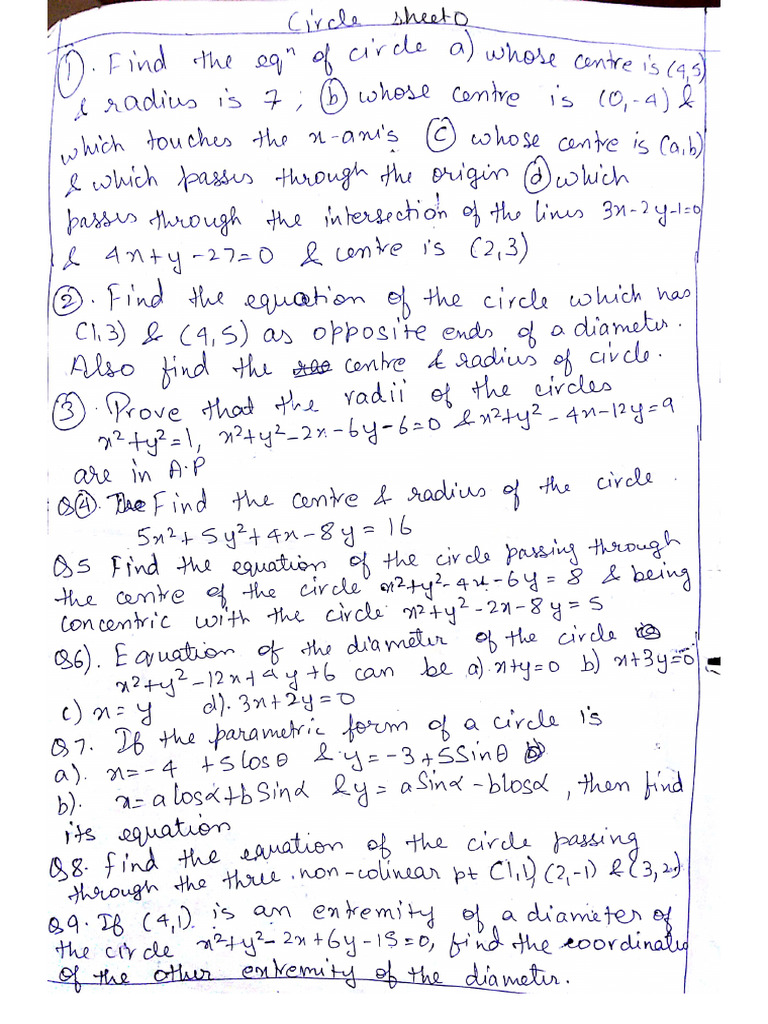 Circle sheet 0
①. Find the eqⁿ of circle a) whose centre is (4,5)
& radius is 7 ; ⓑ whose centre is (0,-4) &
which touches the x-axis ⓒ whose centre is (a,b)
& which passes through the origin ⓓ which
passes through the intersection of the lines 3x-2y-1=0
& 4x+y-27=0 & centre is (2,3)
②. Find the equation of the circle which has
(1,3) & (4,5) as opposite ends of a diameter.
Also find the centre & radius of circle.
③. Prove that the radii of the circles
x²+y²=1, x²+y²-2x-6y-6=0 & x²+y²-4x-12y=9
are in A.P
Q④. Find the centre & radius of the circle.
5x²+5y²+4x-8y=16
Q5 Find the equation of the circle passing through
the centre of the circle x²+y²-4x-6y=8 & being
concentric with the circle x²+y²-2x-8y=5
Q6). Equation of the diameter of the circle is
x²+y²-12x+4y+6 can be a). x+y=0 b) x+3y=0
c) x=y d). 3x+2y=0
Q7. If the parametric form of a circle is
a). x=-4+5cosθ & y=-3+5sinθ
b). x=acosα+bsinα & y=asinα-bcosα, then find
its equation
Q8. find the equation of the circle passing
through the three non-colinear pt (1,1) (2,-1) & (3,2).
Q9. If (4,1) is an extremity of a diameter of
the circle x²+y²-2x+6y-15=0, find the coordinate
of the other extremity of the diameter.